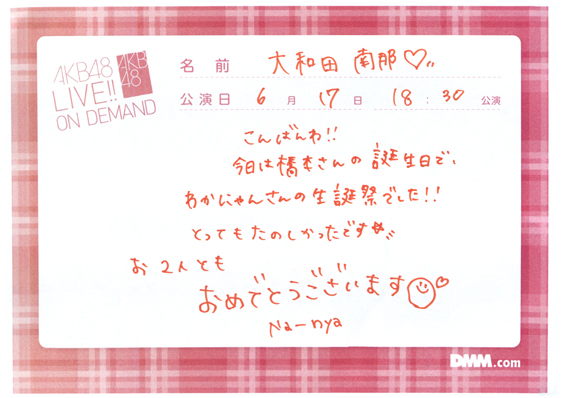 AKB48
LIVE!!
ON DEMAND
AKB
48
名前 大和田 南那♡
公演日 6月 17日 18:30 公演
こんばんわ!!
今日は橋本さんの誕生日で、
わかにゃんさんの生誕祭でした!!
とってもたのしかったです☆
お2人とも
おめでとうございます
Na-nya
DMM.com